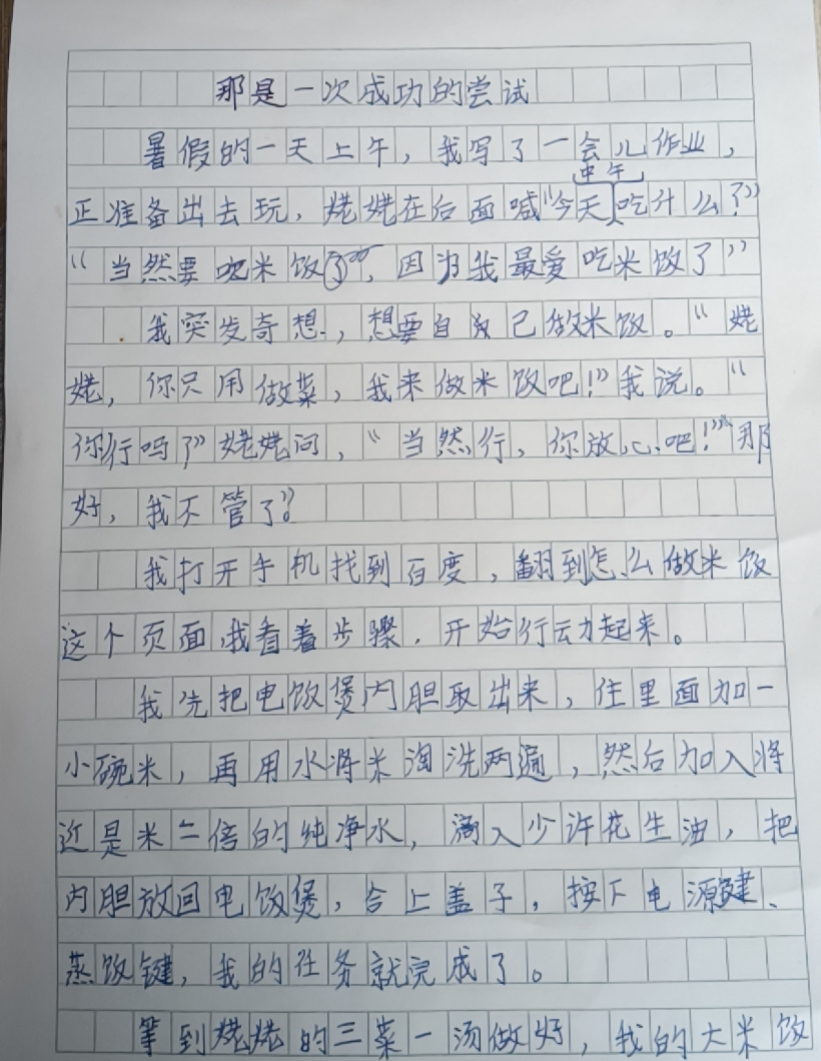 那是一次成功的尝试
暑假的一天上午，我写了一会儿作业，
中午
正准备出去玩，姥姥在后面喊“今天吃什么？”
“当然要吃米饭了，因为我最爱吃米饭了”
我突发奇想，想要自己做米饭。“姥
姥，你只用做菜，我来做米饭吧！”我说。“
你行吗？”姥姥问，“当然行，你放心吧！”“那
好，我不管了”。
我打开手机找到百度，翻到怎么做米饭
这个页面，我看着步骤，开始行动起来。
我先把电饭煲内胆取出来，往里面加一
小碗米，再用水将米淘洗两遍，然后加入将
近是米二倍的纯净水，滴入少许花生油，把
内胆放回电饭煲，合上盖子，按下电源键、
蒸饭键，我的任务就完成了。
等到姥姥的三菜一汤做好，我的大米饭